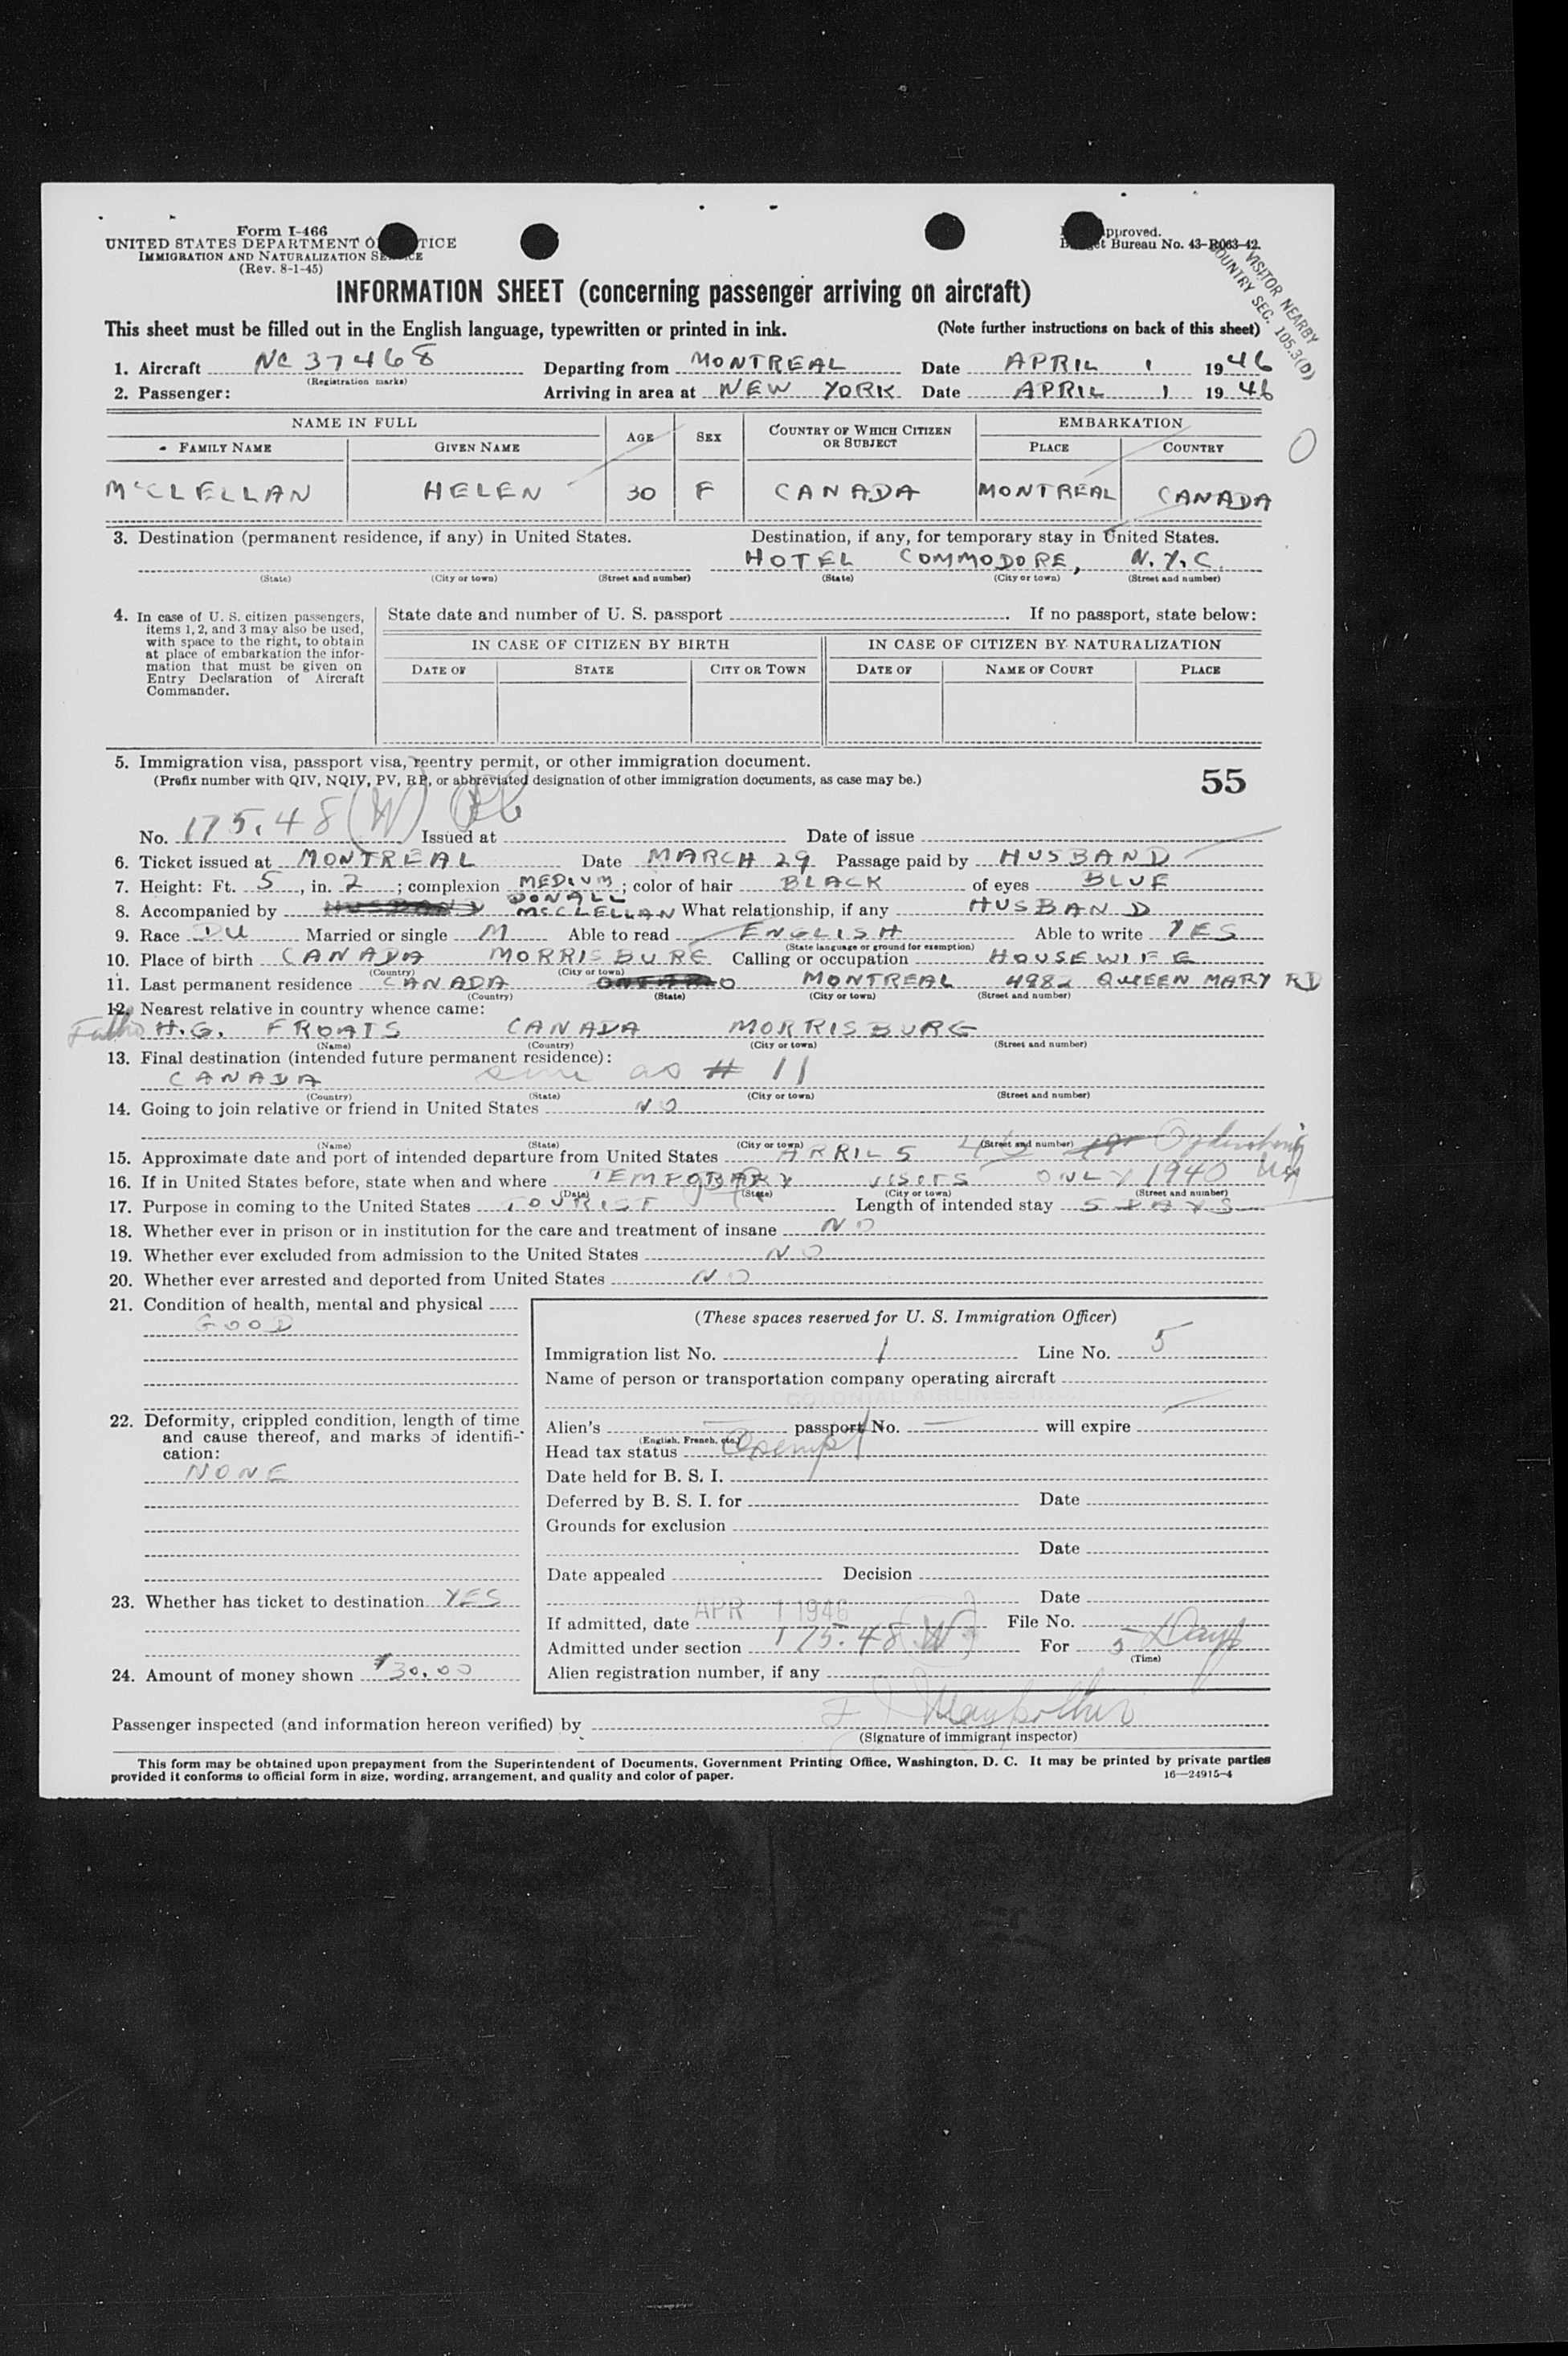 Form I-466
UNITED STATES DEPARTMENT O TICE
IMMIGRATION AND NATURALIZATION SE CE
(Rev. 8-1-45)
pproved.
et Bureau No. 43-R063-42.
VISITOR NEARBY
COUNTRY SEC. 105.3(D)
INFORMATION SHEET (concerning passenger arriving on aircraft)
This sheet must be filled out in the English language, typewritten or printed in ink. (Note further instructions on back of this sheet)
1. Aircraft NC 37468 Departing from MONTREAL Date APRIL 1 1946
(Registration marks)
2. Passenger: Arriving in area at NEW YORK Date APRIL 1 1946
NAME IN FULL AGE SEX COUNTRY OF WHICH CITIZEN OR SUBJECT EMBARKATION
FAMILY NAME GIVEN NAME PLACE COUNTRY
McCLELLAN HELEN 30 F CANADA MONTREAL CANADA
3. Destination (permanent residence, if any) in United States. Destination, if any, for temporary stay in United States.
HOTEL COMMODORE, N.Y.C.
(State) (City or town) (Street and number) (State) (City or town) (Street and number)
4. In case of U. S. citizen passengers, items 1, 2, and 3 may also be used, with space to the right, to obtain at place of embarkation the information that must be given on Entry Declaration of Aircraft Commander.
State date and number of U. S. passport . If no passport, state below:
IN CASE OF CITIZEN BY BIRTH IN CASE OF CITIZEN BY NATURALIZATION
DATE OF STATE CITY OR TOWN DATE OF NAME OF COURT PLACE
5. Immigration visa, passport visa, reentry permit, or other immigration document.
(Prefix number with QIV, NQIV, PV, RP, or abbreviated designation of other immigration documents, as case may be.)
55
No. 175.48 (W) Issued at Date of issue
6. Ticket issued at MONTREAL Date MARCH 29 Passage paid by HUSBAND
7. Height: Ft. 5, in. 2; complexion MEDIUM; color of hair BLACK of eyes BLUE
8. Accompanied by HUSBAND DONALL McCLELLAN What relationship, if any HUSBAND
9. Race DU Married or single M Able to read ENGLISH Able to write YES
(State language or ground for exemption)
10. Place of birth CANADA MORRISBURG Calling or occupation HOUSEWIFE
(Country) (City or town)
11. Last permanent residence CANADA ONTARIO MONTREAL 4982 QUEEN MARY RD
(Country) (State) (City or town) (Street and number)
12. Nearest relative in country whence came:
Father H.G. FROATS CANADA MORRISBURG
(Name) (Country) (City or town) (Street and number)
13. Final destination (intended future permanent residence):
CANADA same as # 11
(Country) (State) (City or town) (Street and number)
14. Going to join relative or friend in United States NO
(Name) (State) (City or town) (Street and number)
15. Approximate date and port of intended departure from United States APRIL 5
16. If in United States before, state when and where TEMPORARY VISITS ONLY 1940
(Date) (State) (City or town) (Street and number)
17. Purpose in coming to the United States TOURIST Length of intended stay 5 DAYS
18. Whether ever in prison or in institution for the care and treatment of insane NO
19. Whether ever excluded from admission to the United States NO
20. Whether ever arrested and deported from United States NO
21. Condition of health, mental and physical
GOOD
22. Deformity, crippled condition, length of time and cause thereof, and marks of identification:
NONE
23. Whether has ticket to destination YES
24. Amount of money shown $30.00
(These spaces reserved for U. S. Immigration Officer)
Immigration list No. 1 Line No. 5
Name of person or transportation company operating aircraft
COLONIAL AIRLINES
Alien's passport No. will expire
(English, French, etc.)
Head tax status Exempt
Date held for B. S. I.
Deferred by B. S. I. for Date
Grounds for exclusion
Date
Date appealed Decision
Date
If admitted, date APR 1 1946 File No.
Admitted under section 175.48 (W) For 5 Days
(Time)
Alien registration number, if any
Passenger inspected (and information hereon verified) by
(Signature of immigrant inspector)
This form may be obtained upon prepayment from the Superintendent of Documents, Government Printing Office, Washington, D. C. It may be printed by private parties
provided it conforms to official form in size, wording, arrangement, and quality and color of paper.
16—24915-4